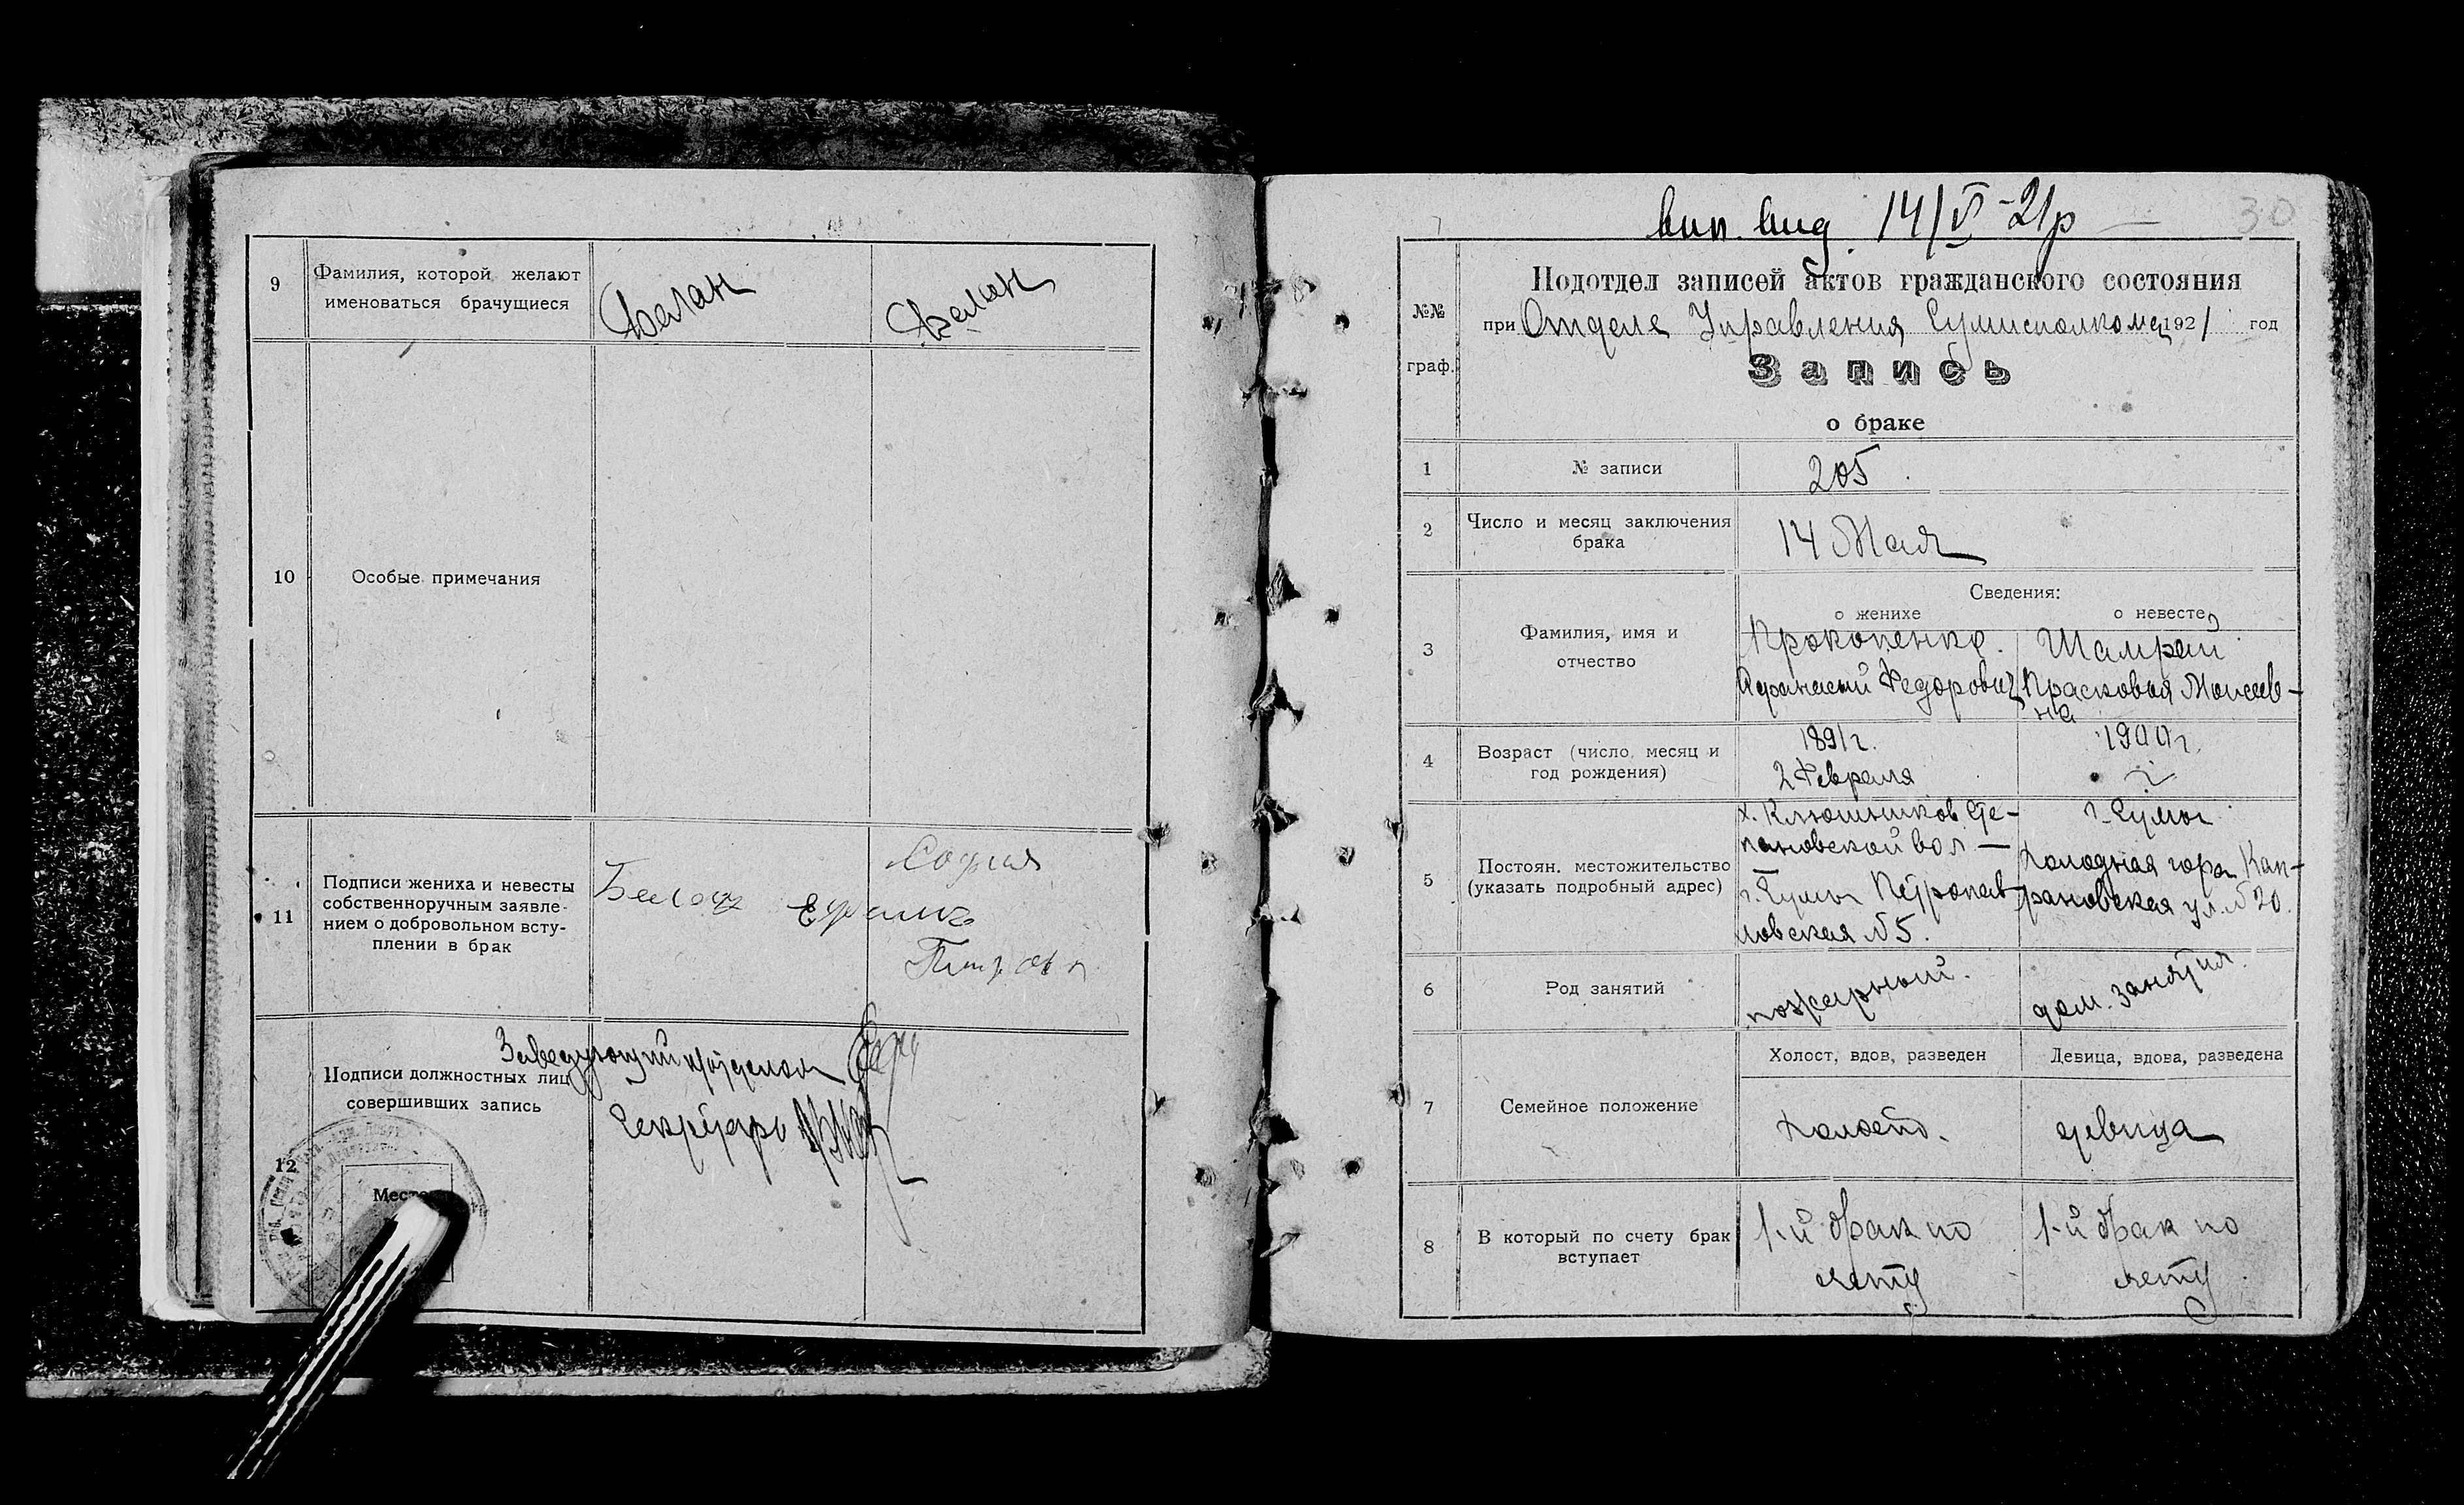 9
Фамилия, которой желают
именоваться брачущиеся
Балан
Балан
10
Особые примечания
11
Подписи жениха и невесты
собственноручным заявле-
нием о добровольном всту-
плении в брак
София
12
Подписи должностных лиц
совершивших запись
Заведующий п/отделом
Секретарь
Место
вип. вид. 14/V-21р
30
№№
граф.
Подотдел записей актов гражданского состояния
при Отделе Управления Сумисполкома 1921 год
Запись
о браке
1
№ записи
205
2
Число и месяц заключения
брака
14 Мая
Сведения:
о женихе
о невесте
3
Фамилия, имя и
отчество
Прокопенко
Афанасий Федорович
Шамрай
Прасковья Моисеев-
на
4
Возраст (число, месяц и
год рождения)
1891г.
2 Февраля
1900г.
5
Постоян. местожительство
(указать подробный адрес)
х. Клюшников Сте-
пановской вол —
г. Сумы Петропав-
ловская №5.
г. Сумы
Холодная гора Кап-
рановская ул. №20.
6
Род занятий
пожарный.
дом. занятия.
7
Семейное положение
Холост, вдов, разведен
Девица, вдова, разведена
холост.
девица
8
В который по счету брак
вступает
1-й брак по
счету
1-й брак по
счету